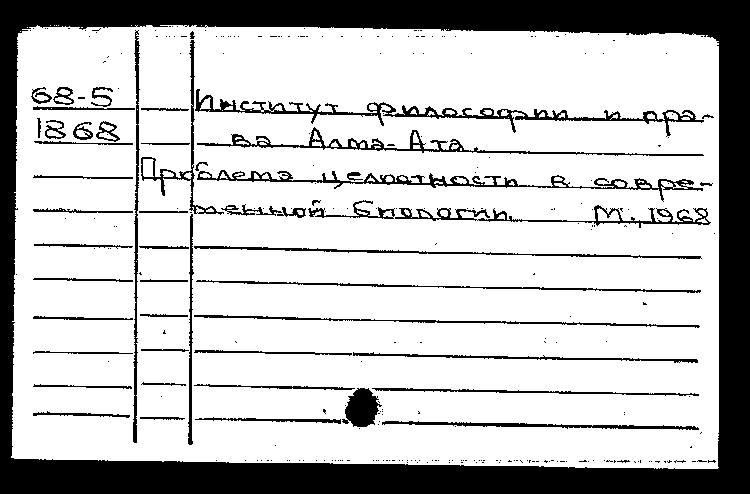 68-5 Институт философии и пра-
1868 ва Алма-Ата.
Проблема целостности в совре-
менной биологии. М., 1968